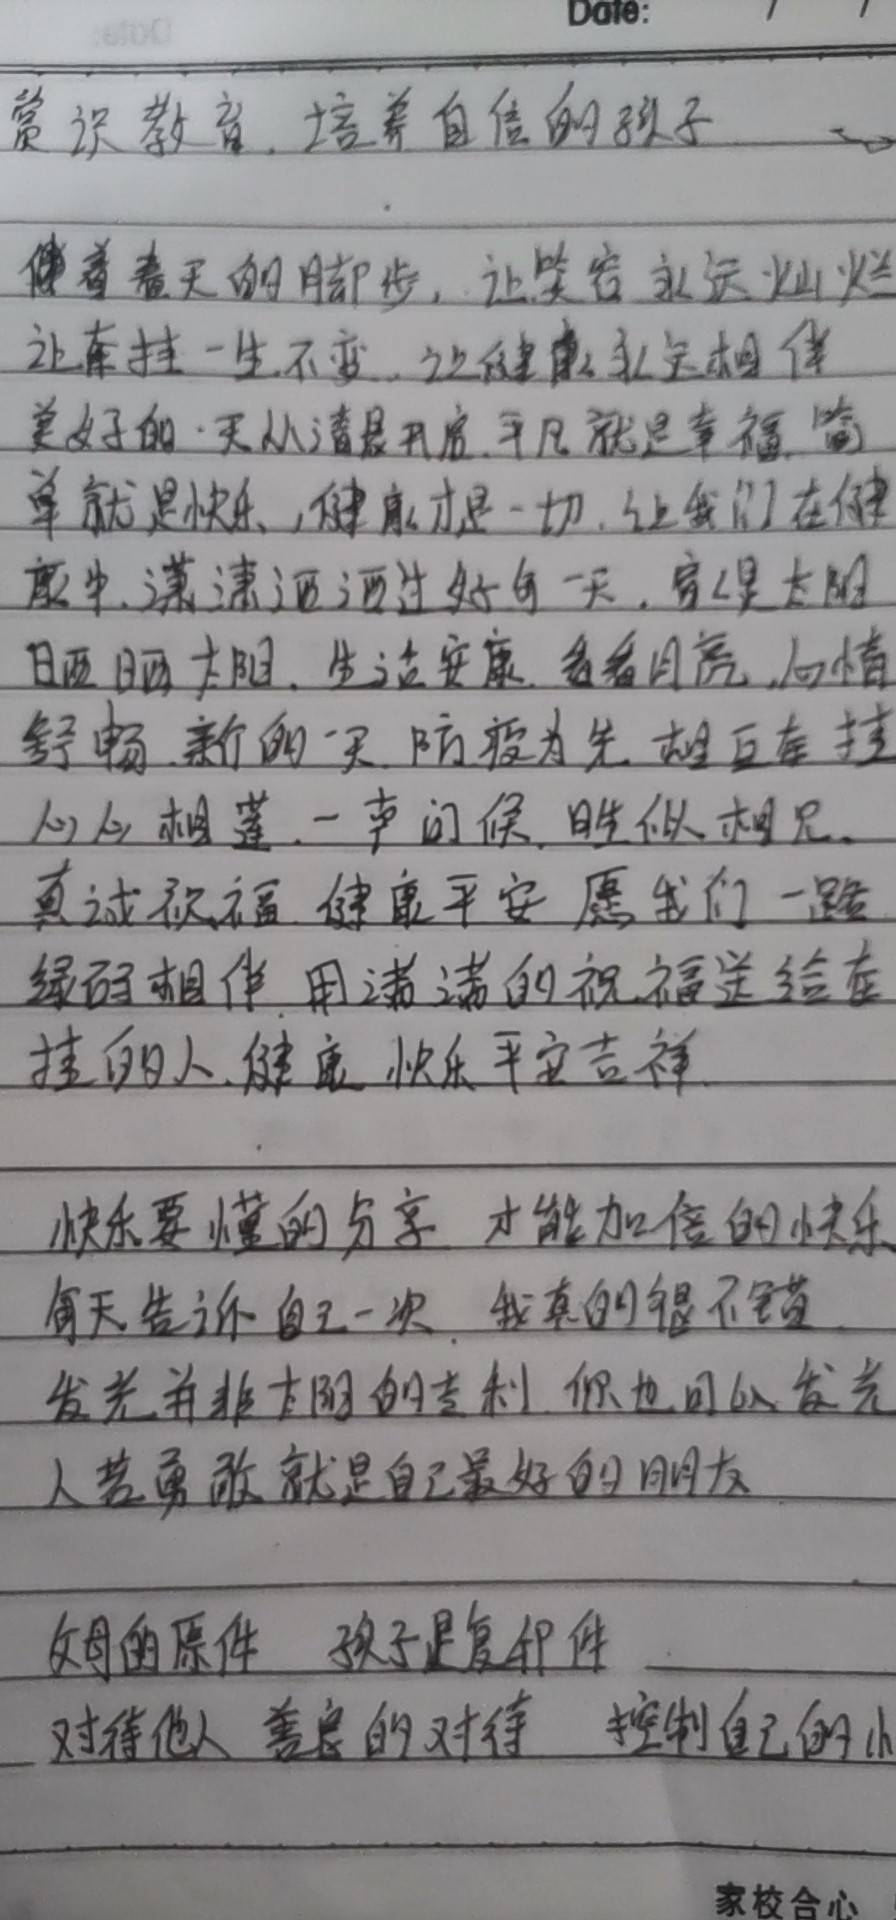 Date: / /
赏识教育.培养自信的孩子
伴着春天的脚步,让笑容永远灿烂
让牵挂一生不变.让健康永远相伴
美好的一天从清晨开启.平凡就是幸福.简
单就是快乐,健康才是一切.让我们在健
康中.潇潇洒洒过好每一天.太阳
晒晒太阳.生活安康.看看月亮.心情
舒畅.新的一天.防疫为先.相互牵挂
心心相莲.一声问候.胜似相见.
真诚祝福.健康平安 愿我们一路
绿码相伴.用满满的祝福送给牵
挂的人.健康 快乐平安吉祥.
快乐要懂的分享 才能加倍的快乐
每天告诉自己一次.我真的很不错
发光并非太阳的专利.你也可以发光
人若勇敢就是自己最好的朋友
父母的原件 孩子是复印件
对待他人 善良的对待 控制自己的小
家校合心